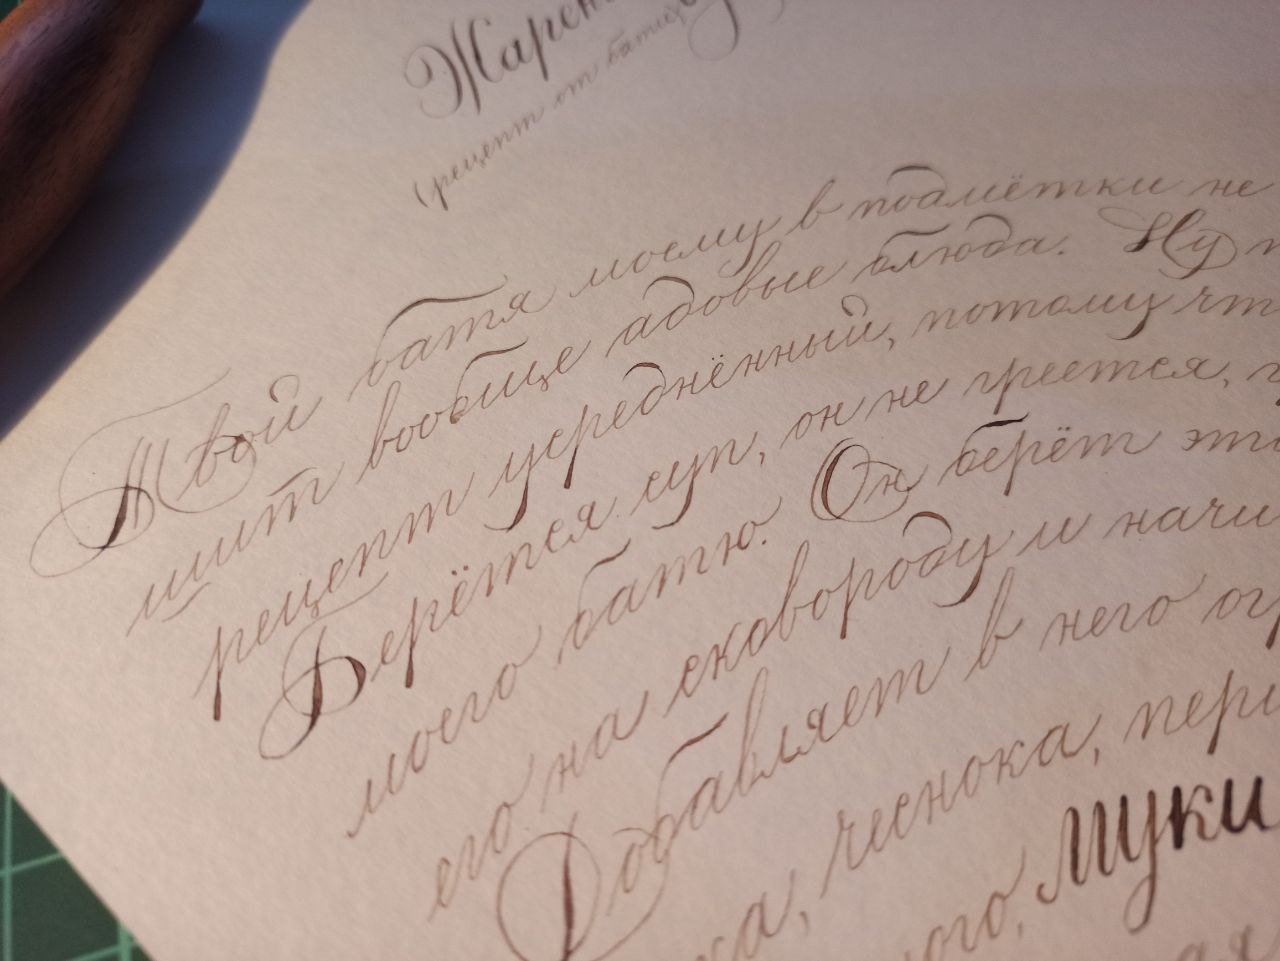 Жарен
(рецепт от батиц
Твой батя моему в подмётки не
шит вообще адовые блюда. Ну
рецепт усреднённый, потому чт
Берётся суп, он не греется,
моего батю. Он берёт это
его на сковороду и начи
Добавляет в него ог
ка, чеснока, пери
ого, МУКИ
ая